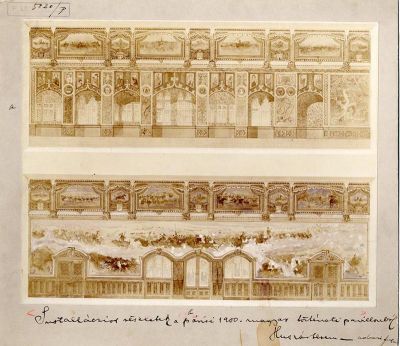 5020/P
Installációs részletek a párisi 1900. magyar történeti pavillonból
Huszárterem